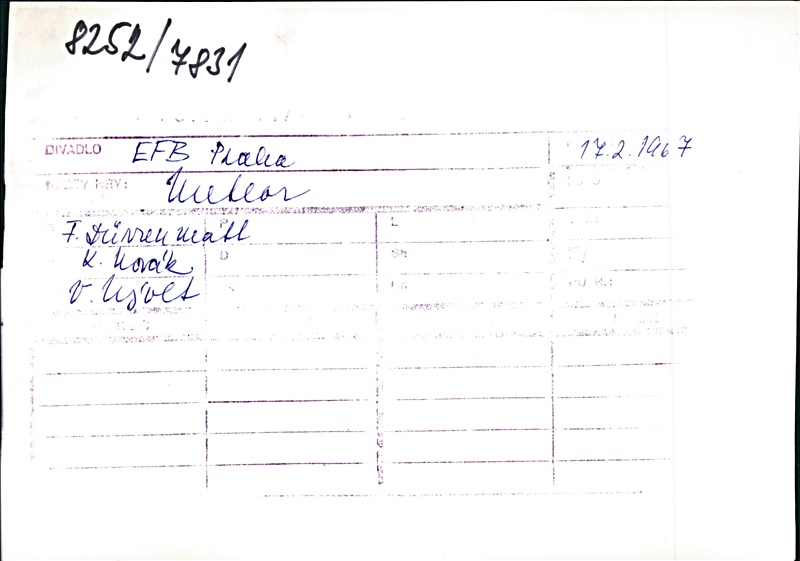 8252/7831
DIVADLO EFB Praha 17.2.1967
Meteor
F. Dürrenmatt L
K. Novák D
V. Nývlt